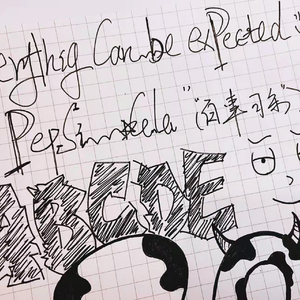 erythig Can be expected
"百事可乐"
ABCDE